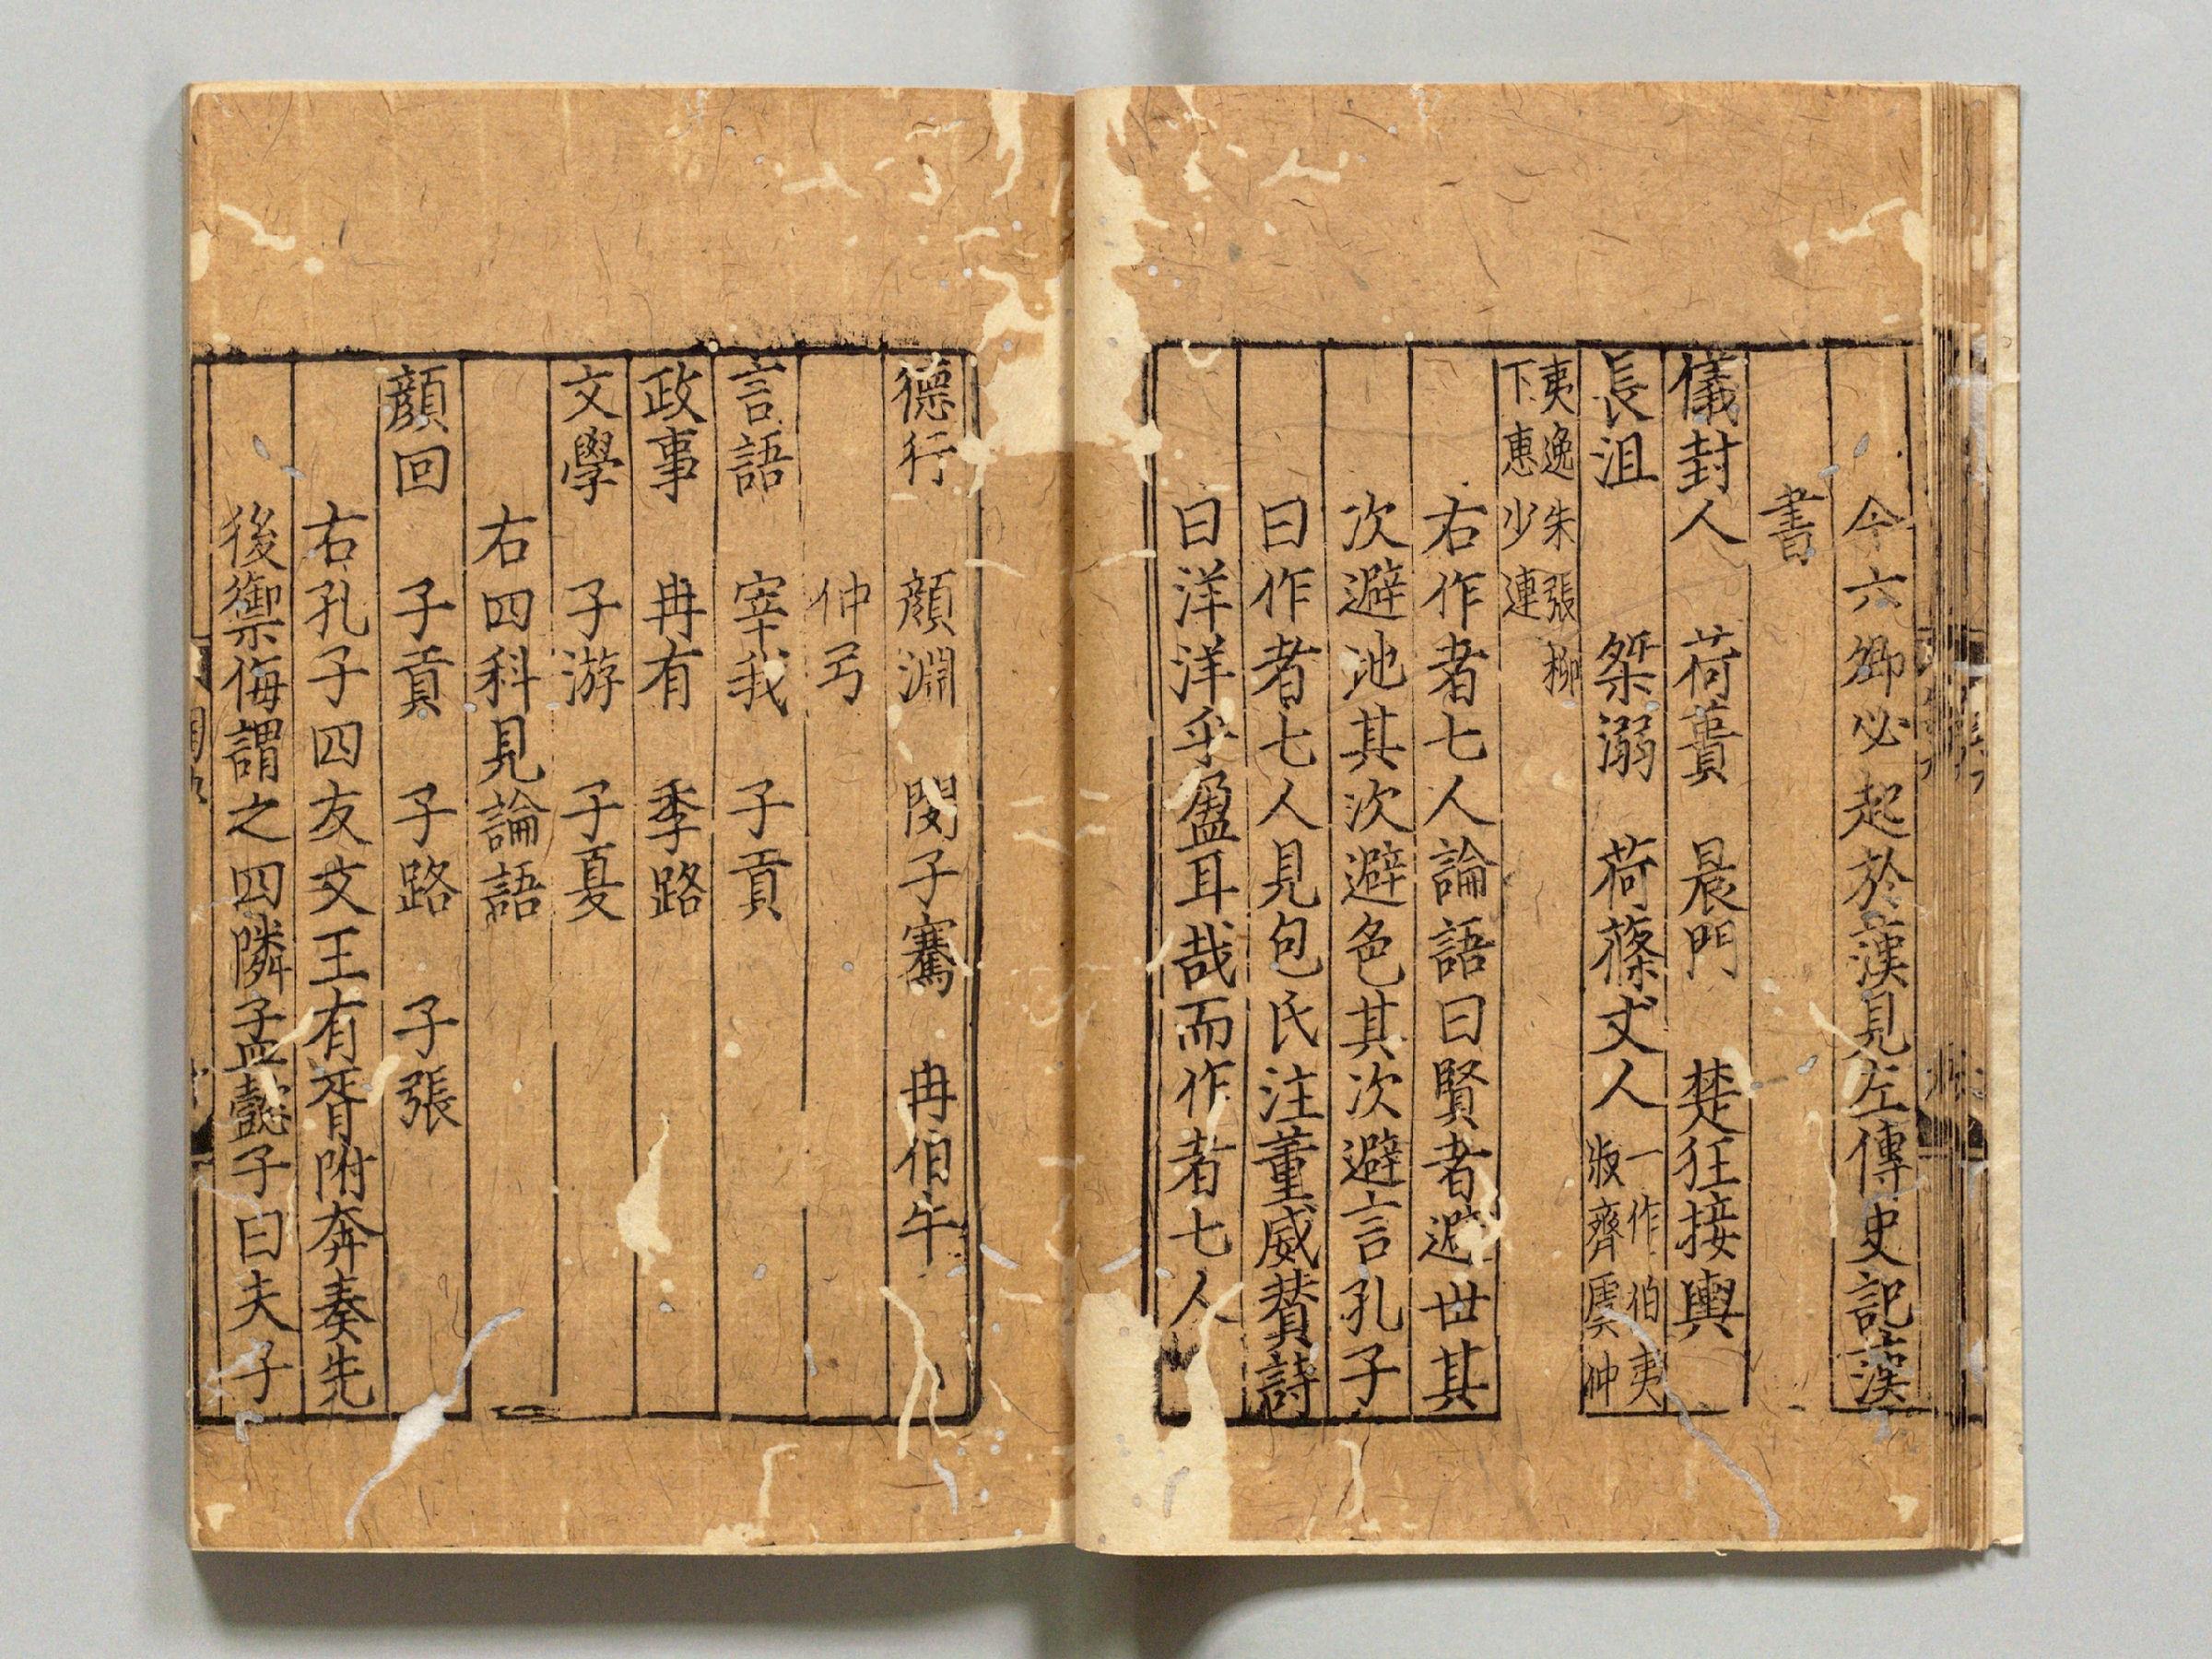 今六卿必起於漢見左傳史記漢
書
儀封人　荷蕢　晨門　楚狂接輿
長沮　桀溺　荷蓧丈人一作伯夷
叔齊虞仲
夷逸朱張柳
下惠少連
右作者七人論語曰賢者避世其
次避地其次避色其次避言孔子
曰作者七人見包氏注董威輦詩
曰洋洋乎盈耳哉而作者七人
德行　顏淵　閔子騫　冉伯牛
仲弓
言語　宰我　子貢
政事　冉有　季路
文學　子游　子夏
右四科見論語
顏回　子貢　子路　子張
右孔子四友文王有胥附奔奏先
後禦侮謂之四隣孟懿子曰夫子